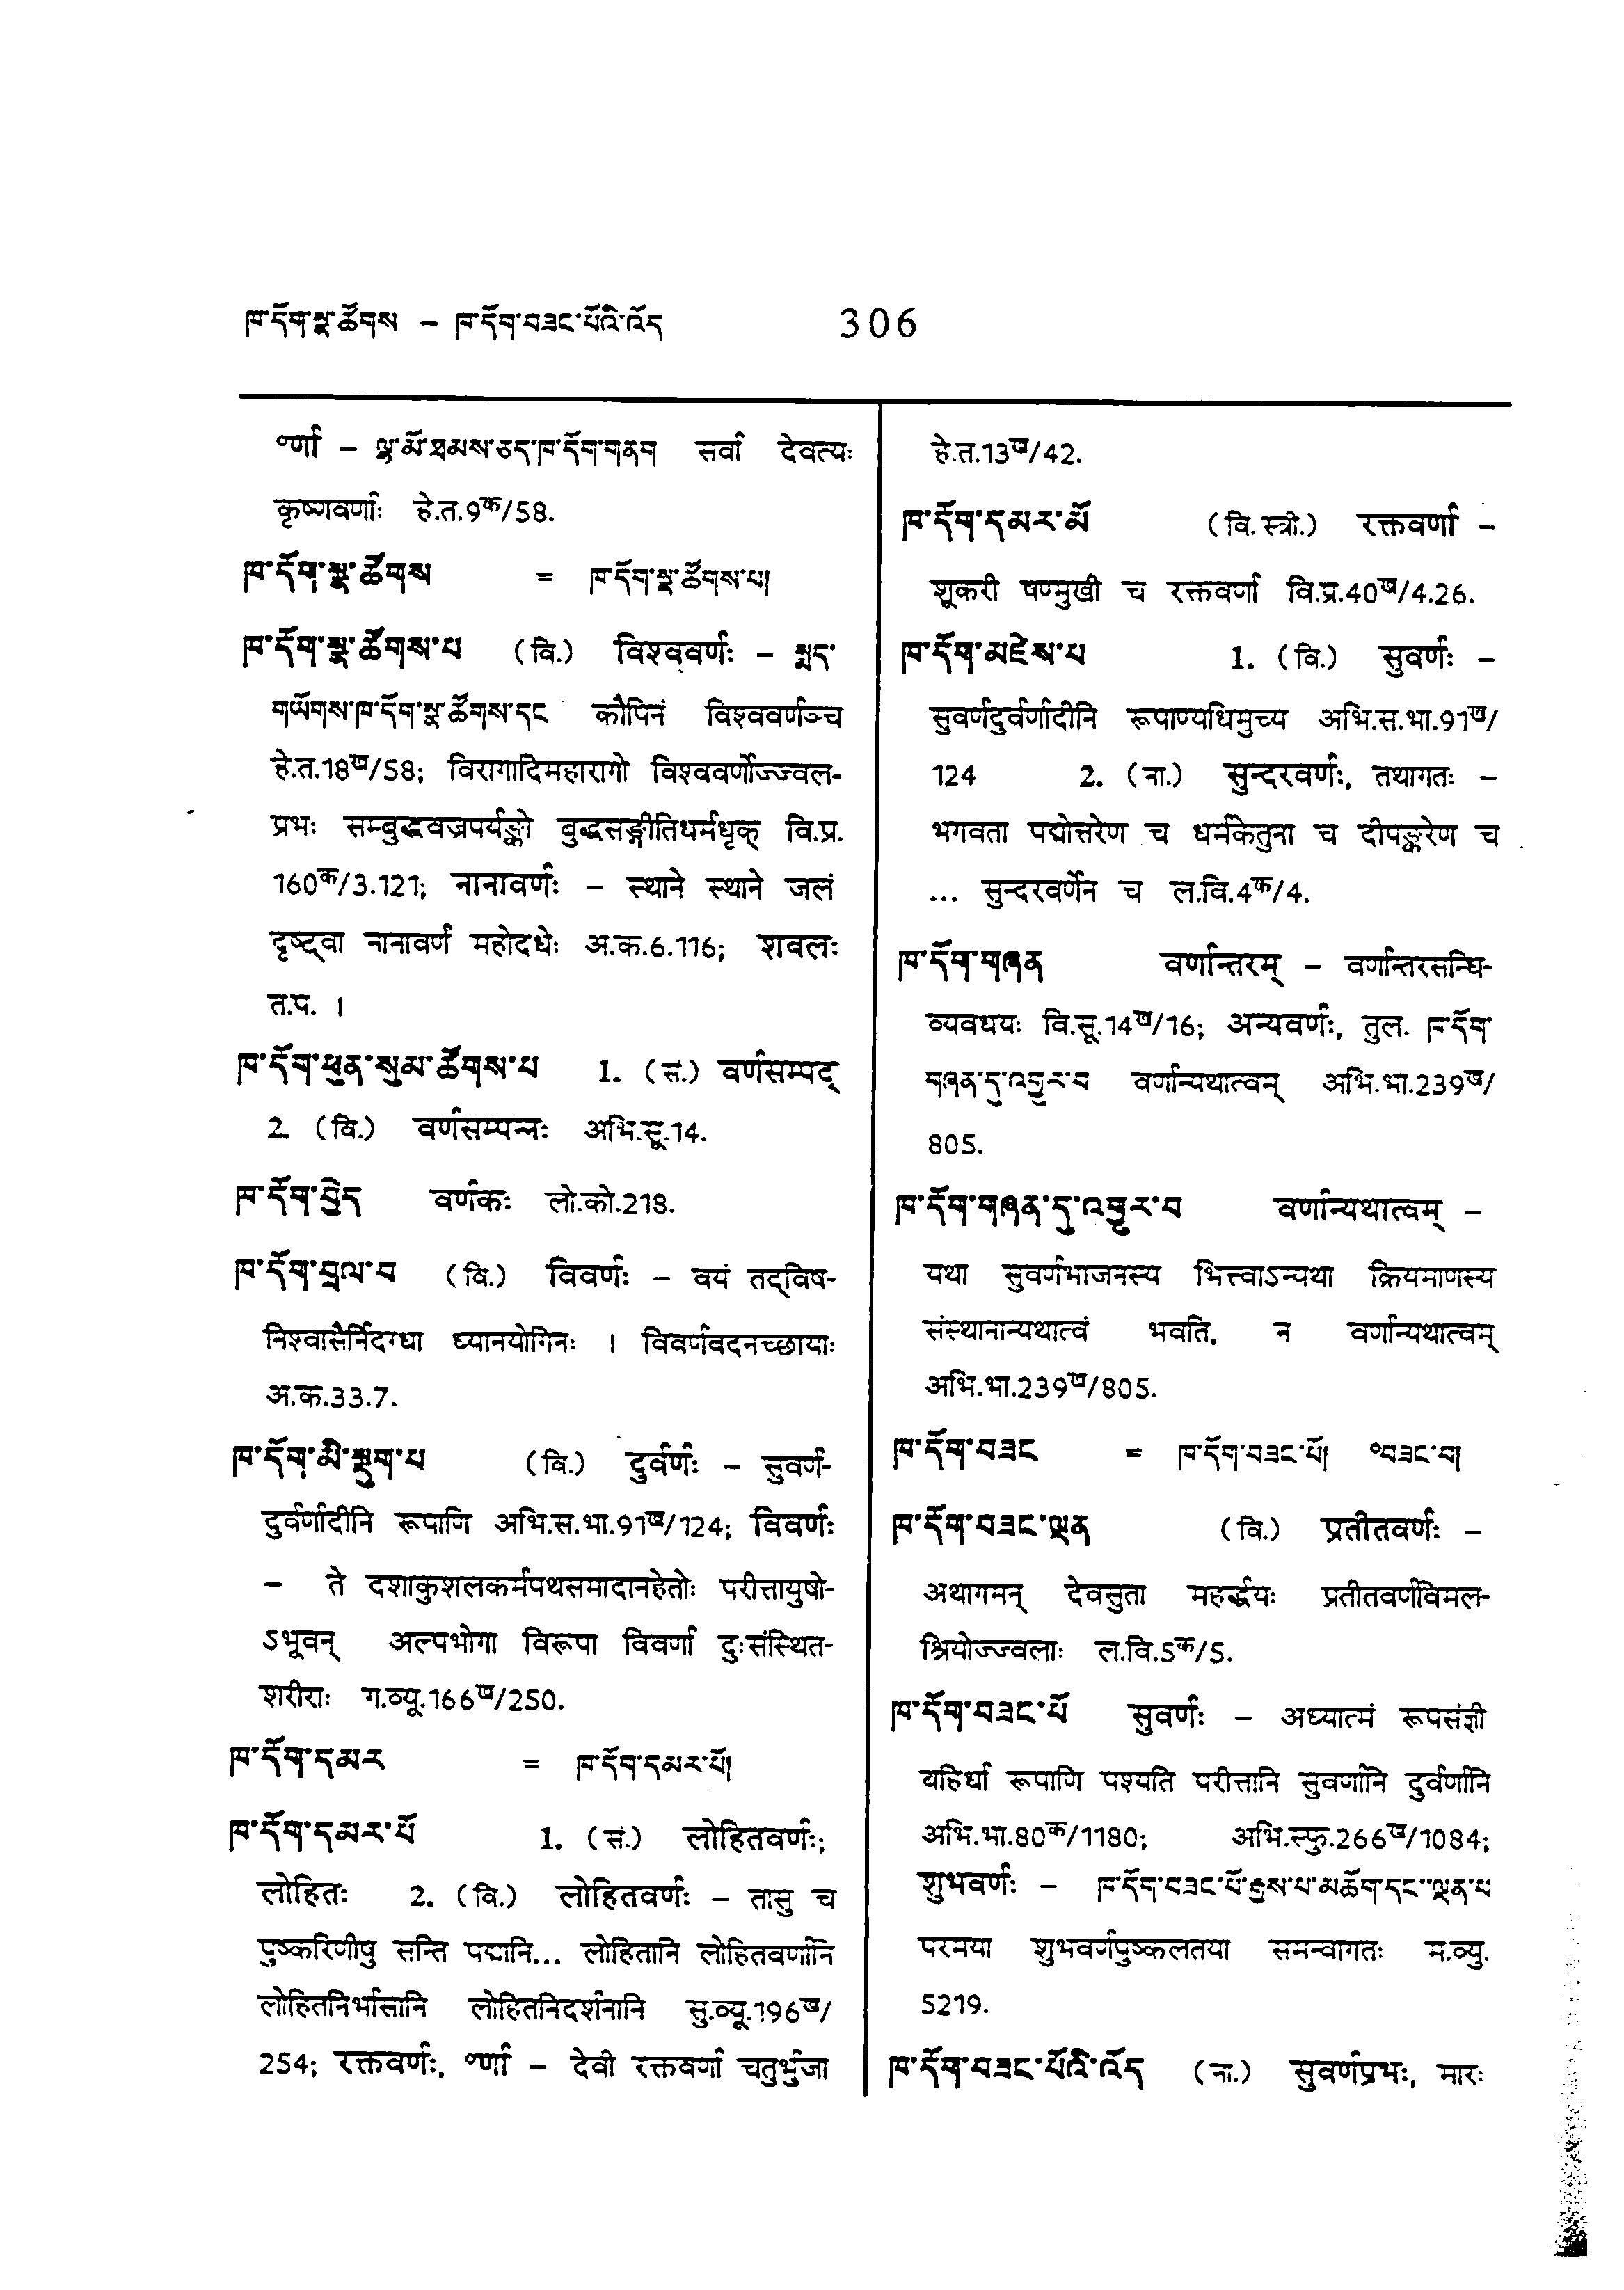 ཁ་དོག་སྣ་ཚོགས – ཁ་དོག་བཟང་པོའི་འོད 306
°र्णा – ལྷ་མོ་ཐམས་ཅད་ཁ་དོག་གནག सर्वा देवत्यः
कृष्णवर्णाः हे.त.9क/58.
ཁ་དོག་སྣ་ཚོགས = ཁ་དོག་སྣ་ཚོགས་པ།
ཁ་དོག་སྣ་ཚོགས་པ (वि.) विश्ववर्णः – སྨད་
གཡོགས་ཁ་དོག་སྣ་ཚོགས་དང कौपिनं विश्ववर्णञ्च
हे.त.18ख/58; विरागादिमहारागो विश्ववर्णोज्ज्वल-
प्रभः सम्बुद्धवज्रपर्यङ्को बुद्धसङ्गीतिधर्मधृक् वि.प्र.
160क/3.121; नानावर्णः – स्थाने स्थाने जलं
दृष्ट्वा नानावर्णं महोदधेः अ.क.6.116; शवलः
त.प. ।
ཁ་དོག་ཕུན་སུམ་ཚོགས་པ 1. (सं.) वर्णसम्पद्
2. (वि.) वर्णसम्पन्नः अभि.सू.14.
ཁ་དོག་བྱེད वर्णकः लो.को.218.
ཁ་དོག་བྲལ་བ (वि.) विवर्णः – वयं तद्विष-
निश्वासैर्निदग्धा ध्यानयोगिनः । विवर्णवदनच्छायाः
अ.क.33.7.
ཁ་དོག་མི་སྡུག་པ (वि.) दुर्वर्णः – सुवर्ण-
दुर्वर्णादीनि रूपाणि अभि.स.भा.91ख/124; विवर्णः
– ते दशाकुशलकर्मपथसमादानहेतोः परीत्तायुषो-
ऽभूवन् अल्पभोगा विरूपा विवर्णा दुःसंस्थित-
शरीराः ग.व्यू.166ख/250.
ཁ་དོག་དམར = ཁ་དོག་དམར་པོ།
ཁ་དོག་དམར་པོ 1. (सं.) लोहितवर्णः;
लोहितः 2. (वि.) लोहितवर्णः – तासु च
पुष्करिणीषु सन्ति पद्मानि... लोहितानि लोहितवर्णानि
लोहितनिर्भासानि लोहितनिदर्शनानि सु.व्यू.196ख/
254; रक्तवर्णः, °र्णा – देवी रक्तवर्णा चतुर्भुजा
हे.त.13ख/42.
ཁ་དོག་དམར་མོ (वि.स्त्री.) रक्तवर्णा –
शूकरी षण्मुखी च रक्तवर्णा वि.प्र.40ख/4.26.
ཁ་དོག་མཛེས་པ 1. (वि.) सुवर्णः –
सुवर्णदुर्वर्णादीनि रूपाण्यधिमुच्य अभि.स.भा.91ख/
124 2. (ना.) सुन्दरवर्णः, तथागतः –
भगवता पद्मोत्तरेण च धर्मकेतुना च दीपङ्करेण च
... सुन्दरवर्णेन च ल.वि.4क/4.
ཁ་དོག་གཞན वर्णान्तरम् – वर्णान्तरसन्धि-
व्यवधयः वि.सू.14ख/16; अन्यवर्णः, तुल. ཁ་དོག་
གཞན་དུ་འགྱུར་བ वर्णान्यथात्वम् अभि.भा.239ख/
805.
ཁ་དོག་གཞན་དུ་འགྱུར་བ वर्णान्यथात्वम् –
यथा सुवर्णभाजनस्य भित्त्वाऽन्यथा क्रियमाणस्य
संस्थानान्यथात्वं भवति, न वर्णान्यथात्वम्
अभि.भा.239ख/805.
ཁ་དོག་བཟང = ཁ་དོག་བཟང་པོ། °བཟང་བ།
ཁ་དོག་བཟང་ལྡན (वि.) प्रतीतवर्णः –
अथागमन् देवसुता महर्द्धयः प्रतीतवर्णविमल-
श्रियोज्ज्वलाः ल.वि.5क/5.
ཁ་དོག་བཟང་པོ सुवर्णः – अध्यात्मं रूपसंज्ञी
बहिर्धा रूपाणि पश्यति परीत्तानि सुवर्णानि दुर्वर्णानि
अभि.भा.80क/1180; अभि.स्फु.266ख/1084;
शुभवर्णः – ཁ་དོག་བཟང་པོ་རྒྱས་པ་མཆོག་དང་ལྡན་པ
परमया शुभवर्णपुष्कलतया समन्वागतः म.व्यु.
5219.
ཁ་དོག་བཟང་པོའི་འོད (ना.) सुवर्णप्रभः, मारः